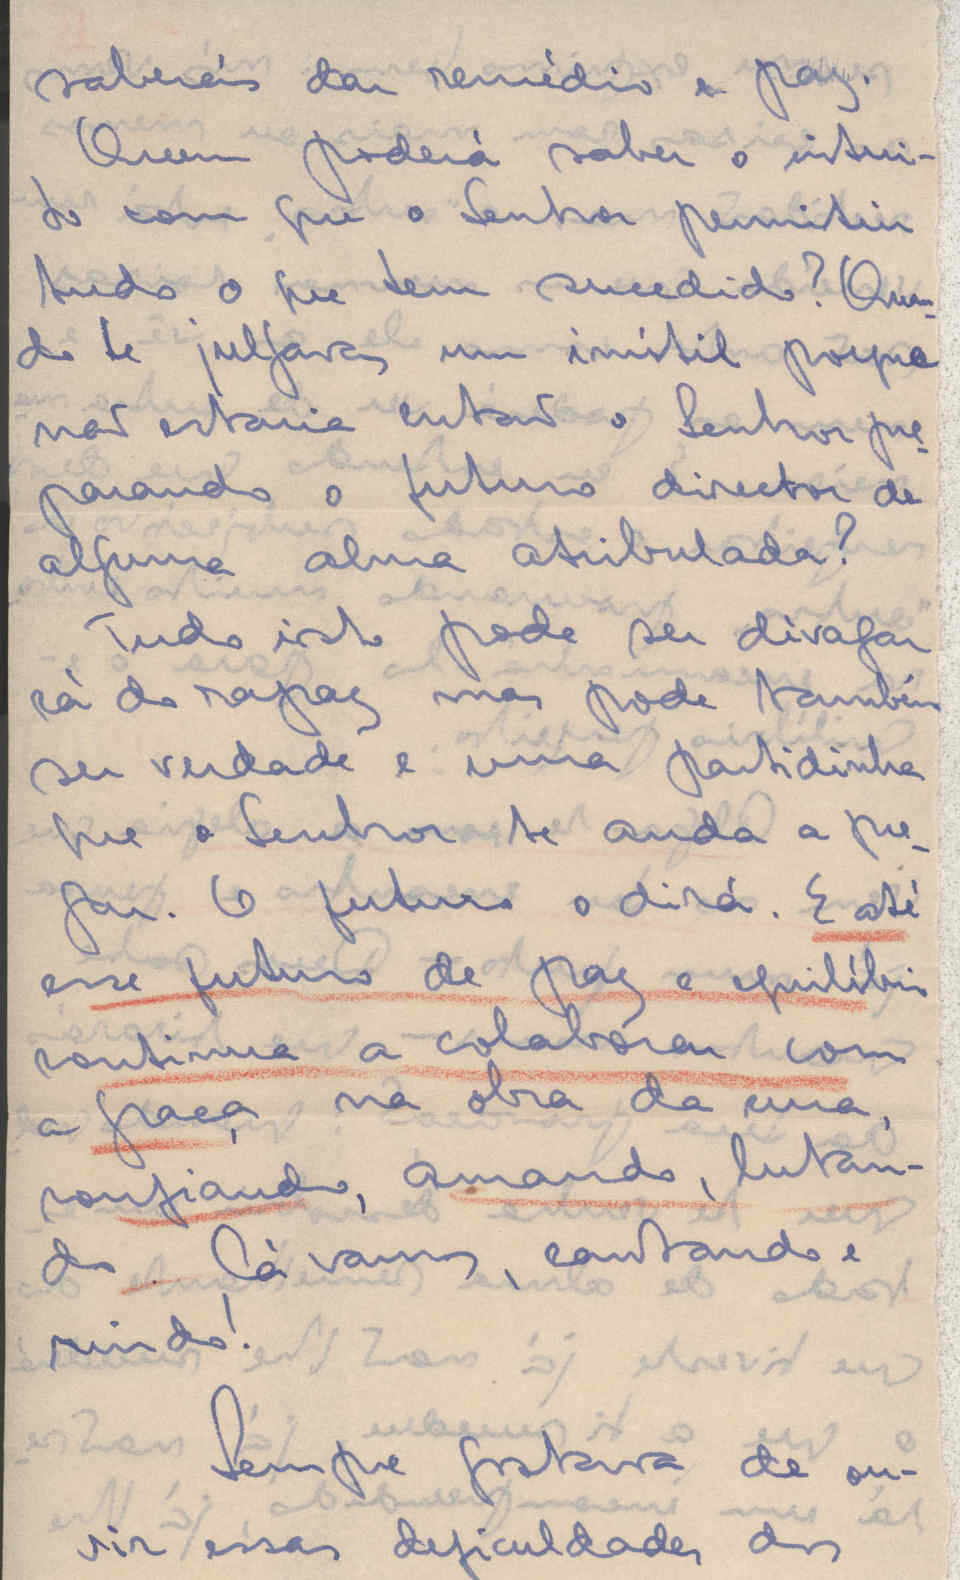 saberás dar remédio e paz.
Quem poderá saber o intui-
to com que o Senhor permitiu
tudo o que tem sucedido? Quan-
do te julgavas um inútil porque
não estaria então o Senhor pre-
parando o futuro director de
alguma alma atribulada?
Tudo isto pode ser divagar
cá do rapaz mas pode também
ser verdade e uma partidinha
que o Senhor te anda a pre-
gar. O futuro o dirá. E até
esse futuro de paz e equilíbrio
continua a colaborar com
a graça na obra da
confiando, amando, lutan-
do. Cá vamos, cantando e
rindo!
Sempre gostava de ou-
vir essas deficuldades dos